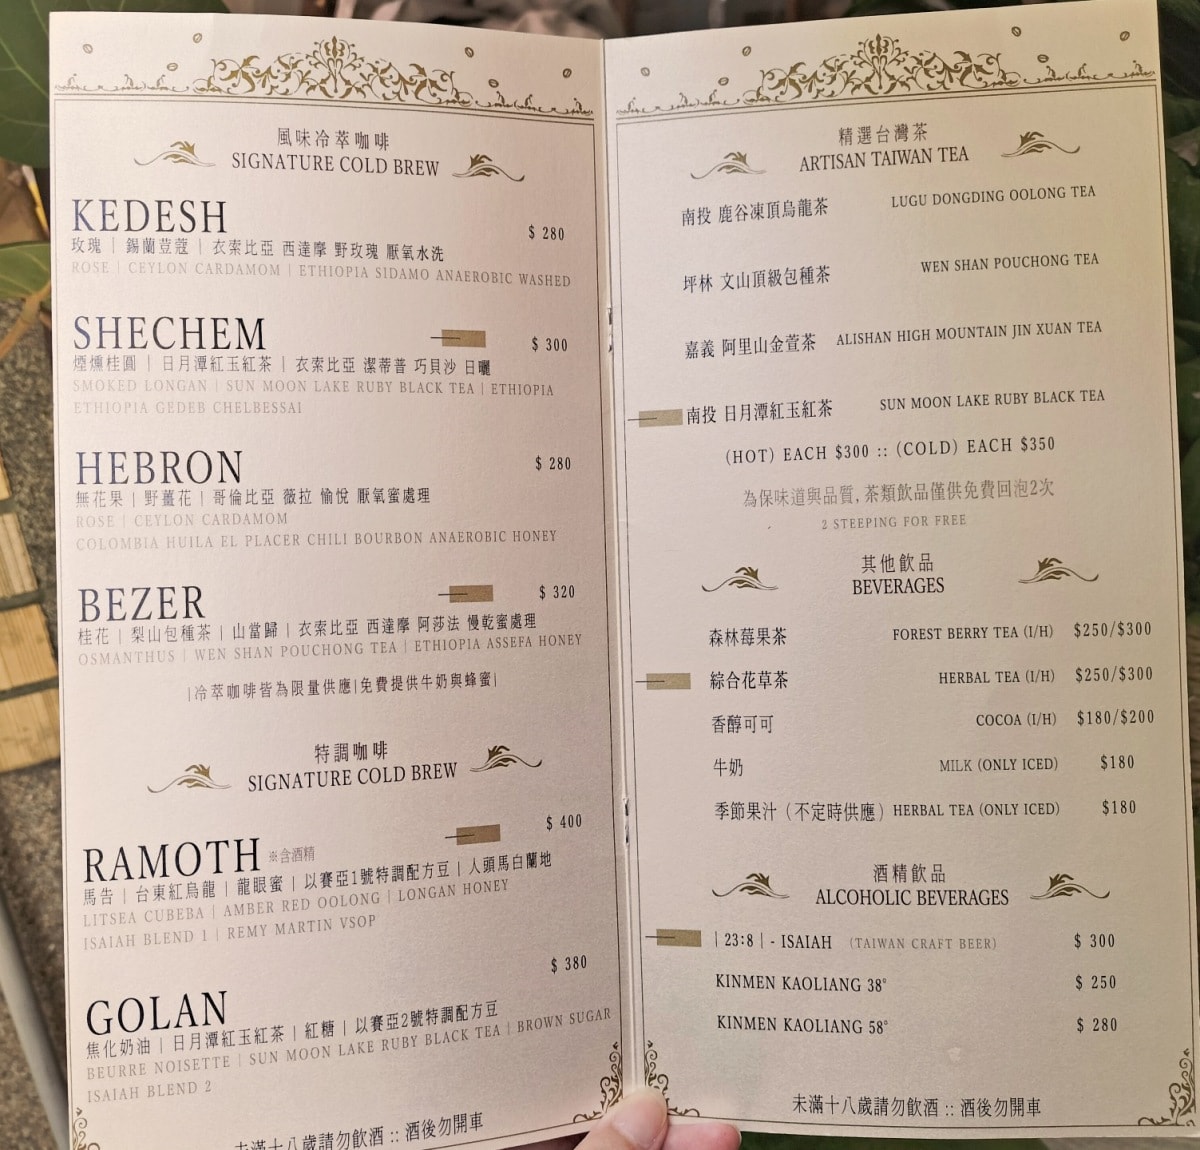 風味冷萃咖啡
SIGNATURE COLD BREW
KEDESH
$ 280
玫瑰 | 錫蘭荳蔻 | 衣索比亞 西達摩 野玫瑰 厭氧水洗
ROSE | CEYLON CARDAMOM | ETHIOPIA SIDAMO ANAEROBIC WASHED
SHECHEM
$ 300
煙燻桂圓 | 日月潭紅玉紅茶 | 衣索比亞 潔蒂普 巧貝沙 日曬
SMOKED LONGAN | SUN MOON LAKE RUBY BLACK TEA | ETHIOPIA
ETHIOPIA GEDEB CHELBESSAI
HEBRON
$ 280
無花果 | 野薑花 | 哥倫比亞 薇拉 愉悅 厭氧蜜處理
ROSE | CEYLON CARDAMOM
COLOMBIA HUILA EL PLACER CHILI BOURBON ANAEROBIC HONEY
BEZER
$ 320
桂花 | 梨山包種茶 | 山當歸 | 衣索比亞 西達摩 阿莎法 慢乾蜜處理
OSMANTHUS | WEN SHAN POUCHONG TEA | ETHIOPIA ASSEFA HONEY
|冷萃咖啡皆為限量供應|免費提供牛奶與蜂蜜|
特調咖啡
SIGNATURE COLD BREW
RAMOTH ※含酒精
$ 400
馬告 | 台東紅烏龍 | 龍眼蜜 | 以賽亞1號特調配方豆 | 人頭馬白蘭地
LITSEA CUBEBA | AMBER RED OOLONG | LONGAN HONEY
ISAIAH BLEND 1 | REMY MARTIN VSOP
$ 380
GOLAN
焦化奶油 | 日月潭紅玉紅茶 | 紅糖 | 以賽亞2號特調配方豆
BEURRE NOISETTE | SUN MOON LAKE RUBY BLACK TEA | BROWN SUGAR
ISAIAH BLEND 2
未滿十八歲請勿飲酒 :: 酒後勿開車
精選台灣茶
ARTISAN TAIWAN TEA
南投 鹿谷凍頂烏龍茶 LUGU DONGDING OOLONG TEA
坪林 文山頂級包種茶 WEN SHAN POUCHONG TEA
嘉義 阿里山金萱茶 ALISHAN HIGH MOUNTAIN JIN XUAN TEA
南投 日月潭紅玉紅茶 SUN MOON LAKE RUBY BLACK TEA
(HOT) EACH $300 :: (COLD) EACH $350
為保味道與品質, 茶類飲品僅供免費回泡2次
2 STEEPING FOR FREE
其他飲品
BEVERAGES
森林莓果茶 FOREST BERRY TEA (I/H) $250/$300
綜合花草茶 HERBAL TEA (I/H) $250/$300
香醇可可 COCOA (I/H) $180/$200
牛奶 MILK (ONLY ICED) $180
季節果汁 (不定時供應) HERBAL TEA (ONLY ICED) $180
酒精飲品
ALCOHOLIC BEVERAGES
| 23:8 | - ISAIAH (TAIWAN CRAFT BEER) $ 300
KINMEN KAOLIANG 38° $ 250
KINMEN KAOLIANG 58° $ 280
未滿十八歲請勿飲酒 :: 酒後勿開車